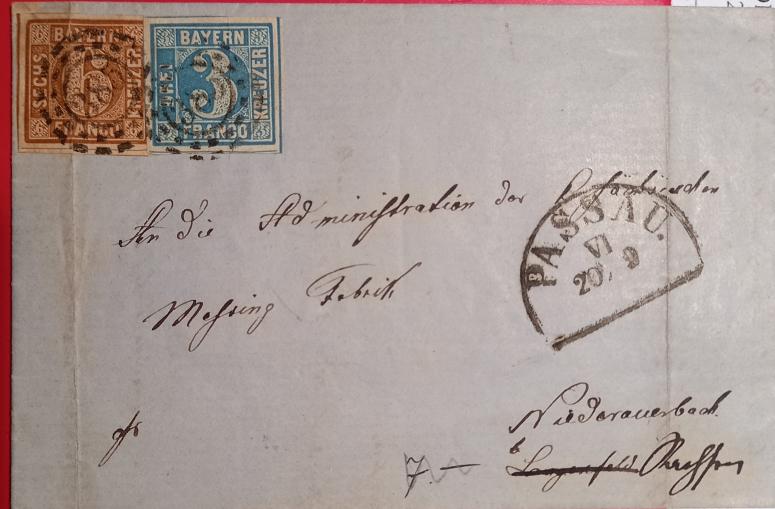 BAYERN
SECHS
6
KREUZER
FRANCO
BAYERN
3
KREUZER
FRANCO
PASSAU.
VI
20. 9
An die Administration der
Messing Fabrik
Niederauerbach
b Lengenfeld Sachsen
7.—